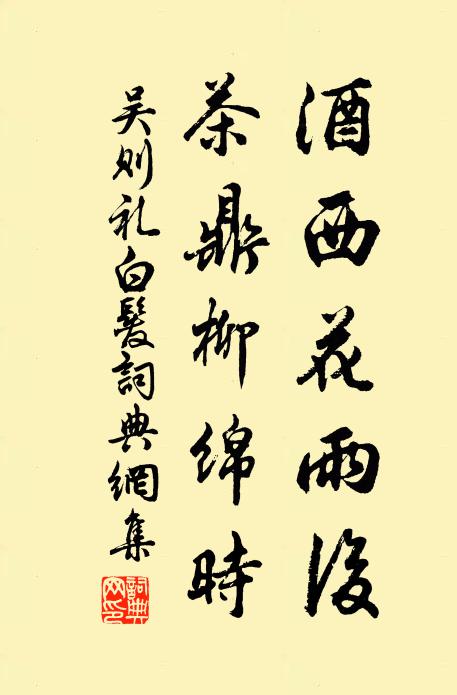 酒西花雨後
茶鼎柳綿時
吴则礼白髮詞典網集
詞典网印